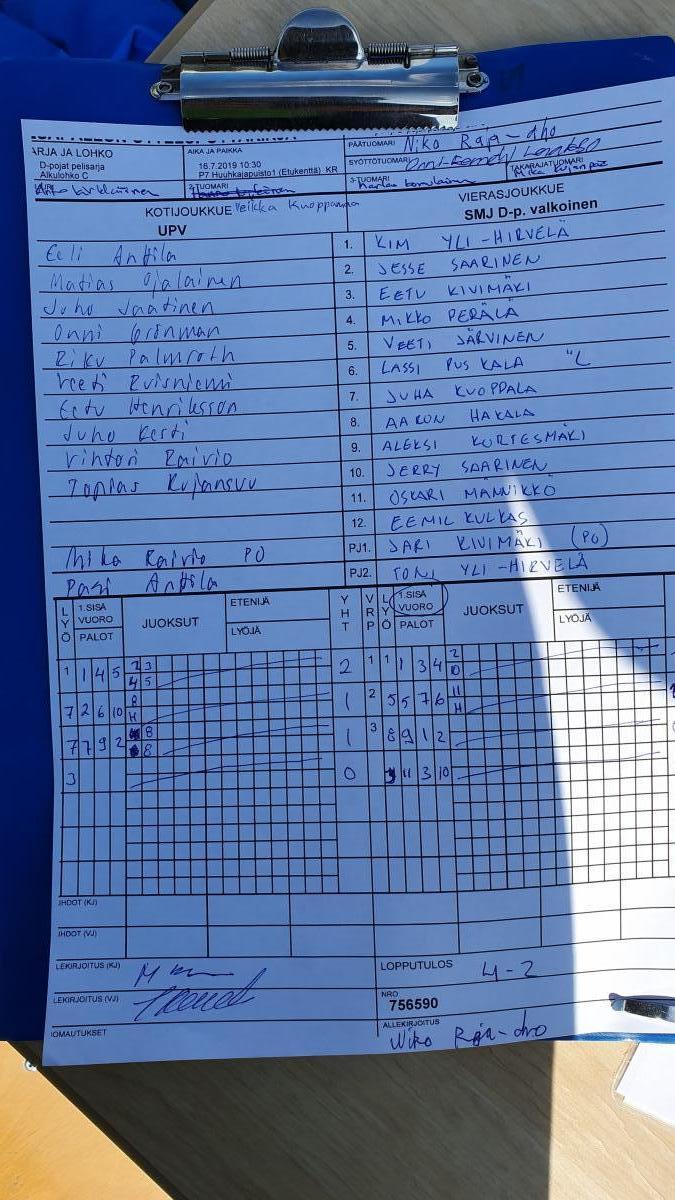 ARJA JA LOHKO
D-pojat pelisarja
Alkulohko C
AIKA JA PAIKKA
16.7.2019 10:30
P7 Huuhkajapuisto1 (Etukenttä) KR
PÄÄTUOMARI Niko Raja-aho
SYÖTTÖTUOMARI
2-TUOMARI
3-TUOMARI
TAKARAJATUOMARI
Veikka Kuoppamaa
KOTIJOUKKUE
UPV
VIERASJOUKKUE
SMJ D-p. valkoinen
Eeli Anttila 1. KIM YLI-HIRVELÄ
Matias Ojalainen 2. JESSE SAARINEN
Juho Jaatinen 3. EETU KIVIMÄKI
Onni Grönman 4. MIKKO PERÄLÄ
Riku Palmroth 5. VEETI JÄRVINEN
Veeti Ruisniemi 6. LASSI PUSKALA "L
Eetu Henriksson 7. JUHA KUOPPALA
Juho Kesti 8. AARON HAKALA
Vihtori Raivio 9. ALEKSI KORTESMÄKI
Topias Kujansuu 10. JERRY SAARINEN
11. OSKARI MÄNNIKKÖ
12. EEMIL KULKAS
Mika Raivio PO PJ1. JARI KIVIMÄKI (PO)
Pasi Anttila PJ2. TONI YLI-HIRVELÄ
LYÖ 1.SISÄ VUORO PALOT JUOKSUT ETENIJÄ LYÖJÄ YHT VRP LYÖ 1.SISÄ VUORO PALOT JUOKSUT ETENIJÄ LYÖJÄ
1 1 4 5 2 3 2 1 1 1 3 4 2
4 5 10
7 2 6 10 8 1 2 5 5 7 6 11
H H
7 7 9 2 8 1 3 8 9 1 2
8
3 0 11 3 10
IHDOT (KJ)
IHDOT (VJ)
LEKIRJOITUS (KJ)
LEKIRJOITUS (VJ)
IOMAUTUKSET
LOPPUTULOS 4-2
NRO
756590
ALLEKIRJOITUS
Niko Raja-aho